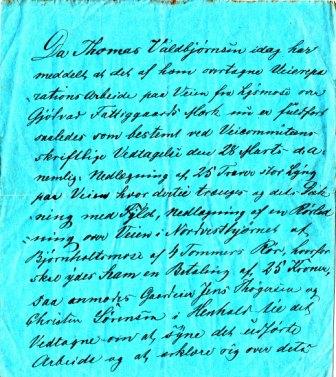 Da Thomas Valdbjørnsen idag har
meddelt at det af ham overtagne Veirepa
rations Arbeide paa Veien fra Lysmose over
Gjølvad Fattiggaards Mark nu er fuldført
saaledes som bestemt ved Veicommitens
skriftlige Vedtagelse den 28 Marts d. A
nemlig: Nedlegning af 25 Traver stor Lyng
paa Veien hvor dertil trænges og dets Dæk
ning med Fyld, Nedlægning af en Rørled
ning over Veien i Nordvesthjørnet af
Bjørnholtsmose af 4 Tommers Rør, hvorfor
skal ydes ham en Betaling af 25 Kroner,
saa anmodes Gaardeier Jens Thøgersen og
Christen Sørensen i Henhold til det
Vedtagne om at syne det udførte
Arbeide og at erklære sig over dets